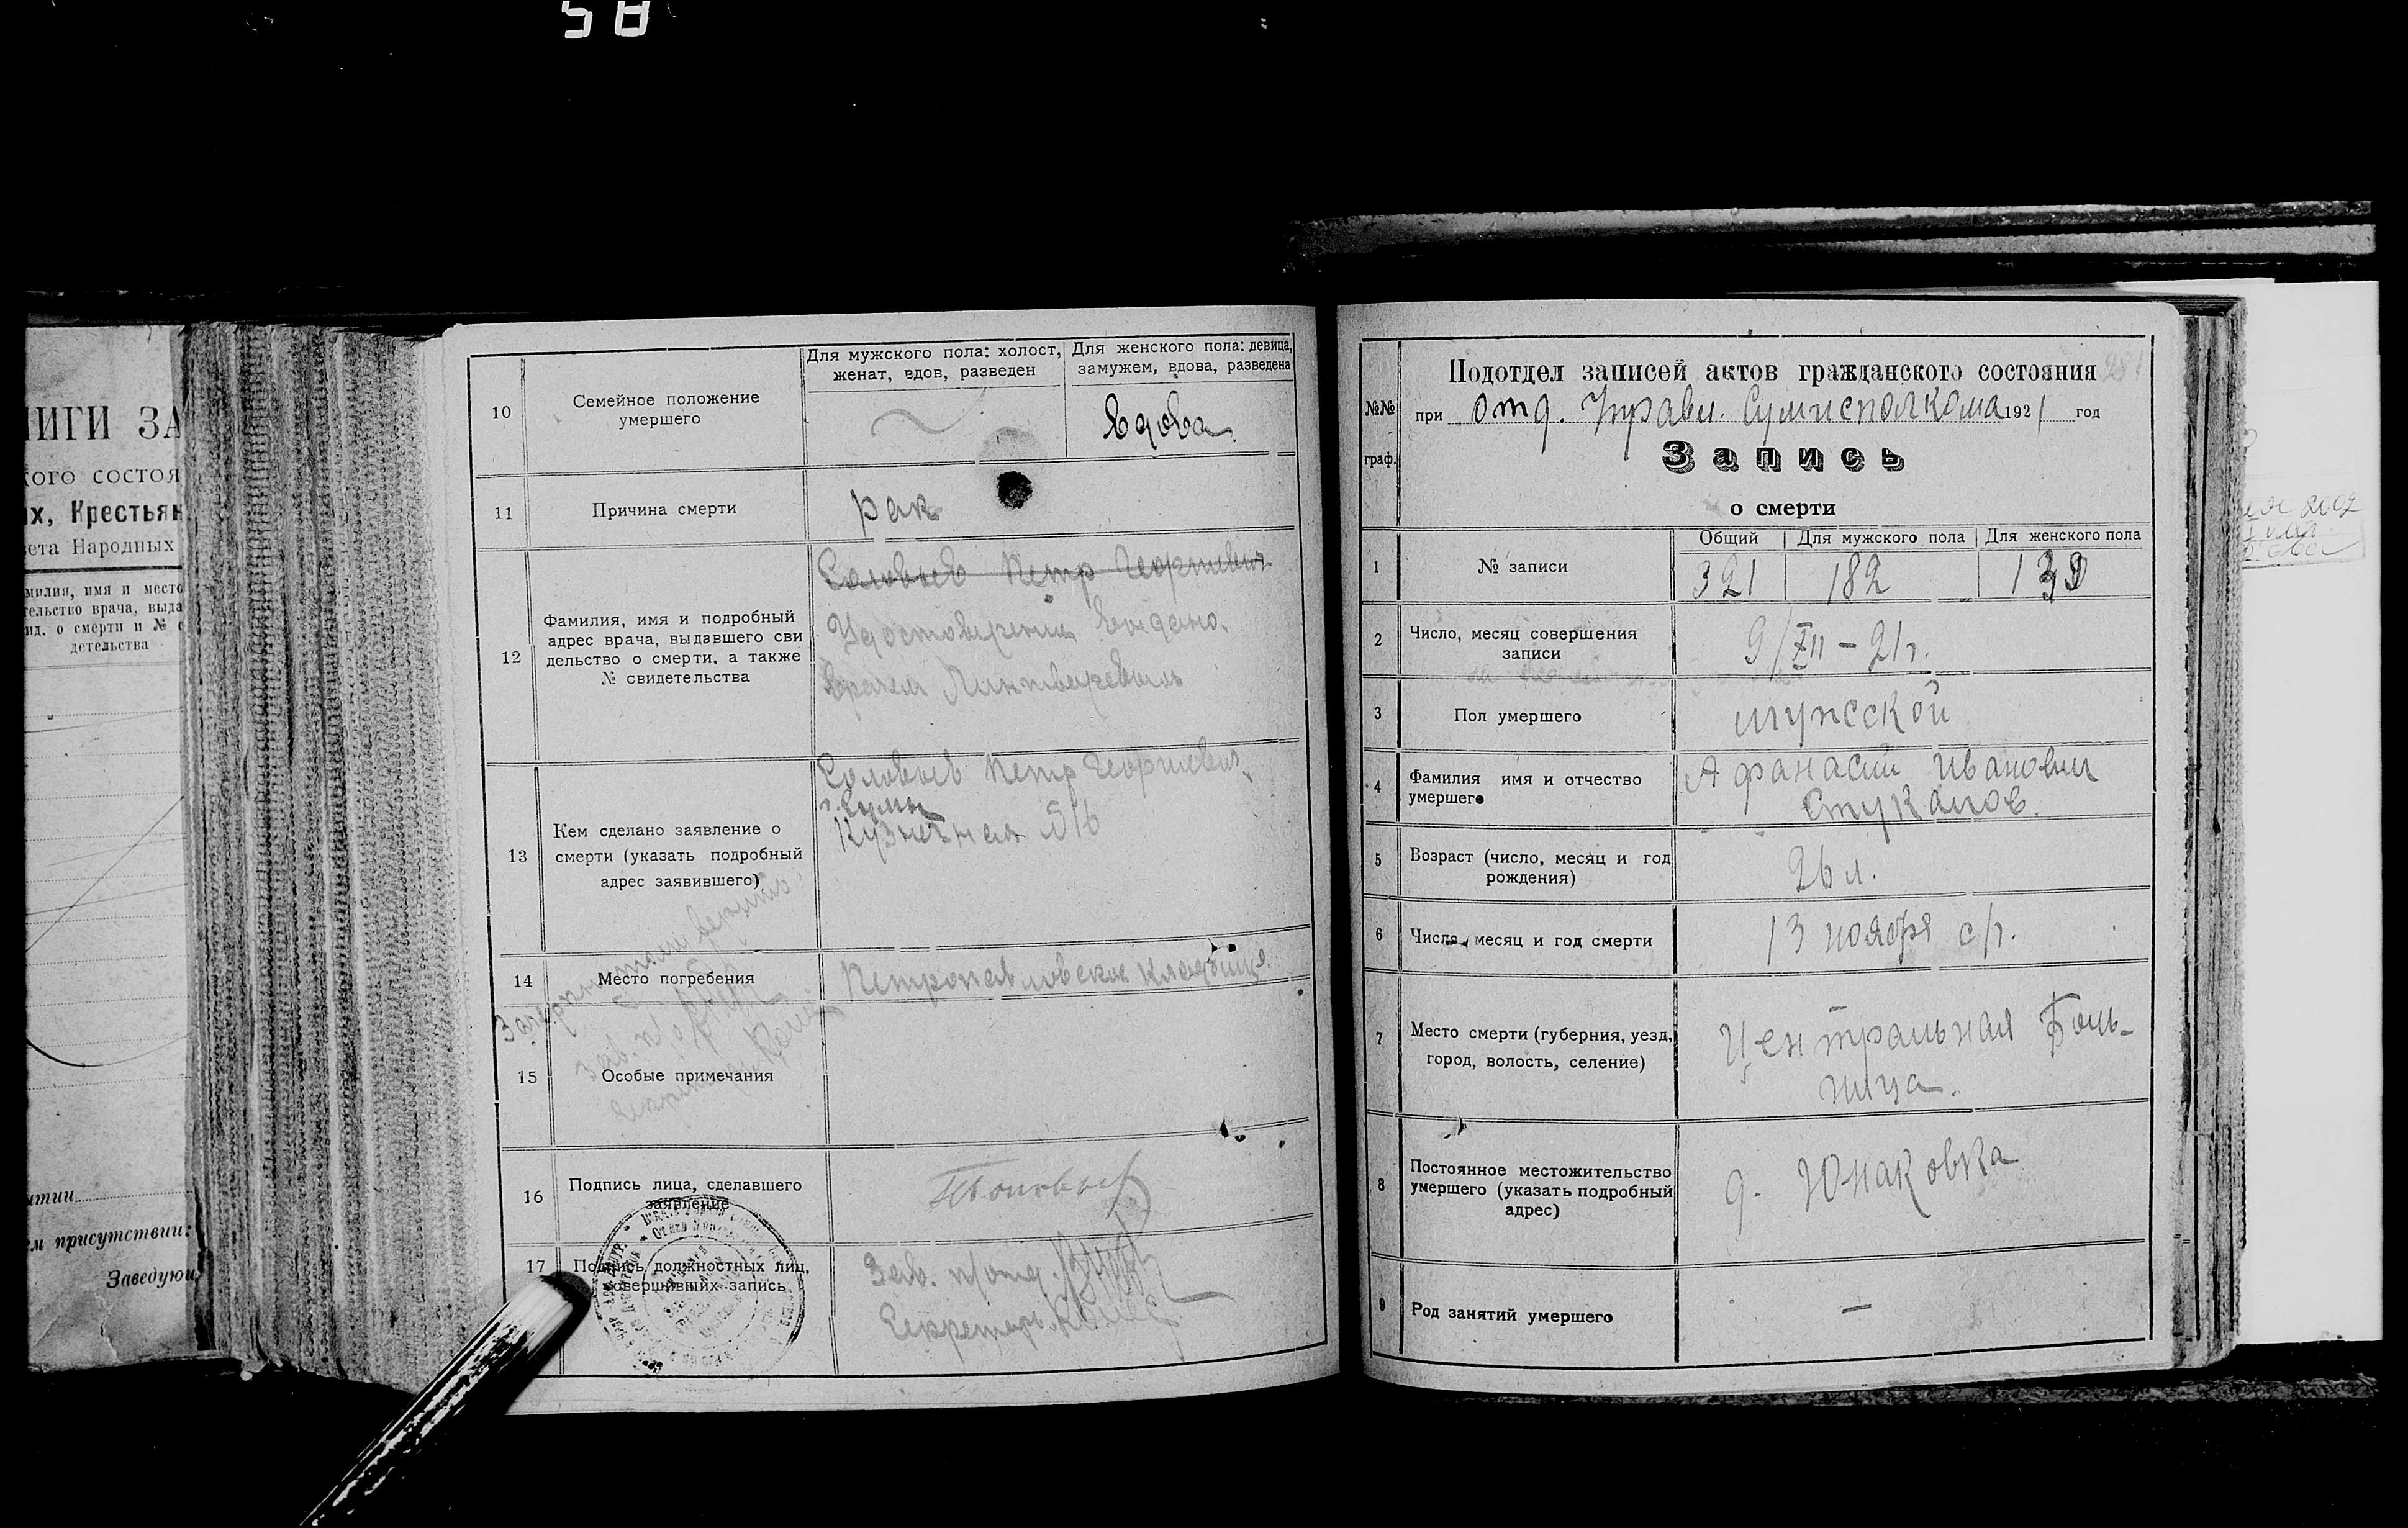 58
ИГИ ЗА
кого состоя
х, Крестьян
вета Народных
милия, имя и место
тельство врача, выда
ид. о смерти и № с
детельства
м присутствии:
Заведую
10
Семейное положение
умершего
Для мужского пола: холост,
женат, вдов, разведен
Для женского пола: девица,
замужем, вдова, разведена
Вдова
11
Причина смерти
рак
12
Фамилия, имя и подробный
адрес врача, выдавшего сви
дельство о смерти, а также
№ свидетельства
Соловьев Петр Георгиевич
Удостоверение выдано
врачем Линтваревым
13
Кем сделано заявление о
смерти (указать подробный
адрес заявившего)
Соловьев Петр Георгиевич
г. Сумы
Кузнечная №16
14
Место погребения
Петропавловское кладбище.
15
Особые примечания
16
Подпись лица, сделавшего
заявление
17
Подпись должностных лиц,
совершивших запись
Зав. п/отд.
Секретарь
№№
граф.
Подотдел записей актов гражданского состояния
при отд. Управл. Сумисполкома 1921 год
Запись
о смерти
1
№ записи
Общий
Для мужского пола
Для женского пола
321
182
139
2
Число, месяц совершения
записи
9/XII – 21 г.
3
Пол умершего
мужской
4
Фамилия имя и отчество
умершего
Афанасий Иванович
Стукалов.
5
Возраст (число, месяц и год
рождения)
26 л.
6
Число, месяц и год смерти
13 ноября с/г.
7
Место смерти (губерния, уезд,
город, волость, селение)
Центральная Боль-
ница.
8
Постоянное местожительство
умершего (указать подробный
адрес)
д. Юнаковка
9
Род занятий умершего
—